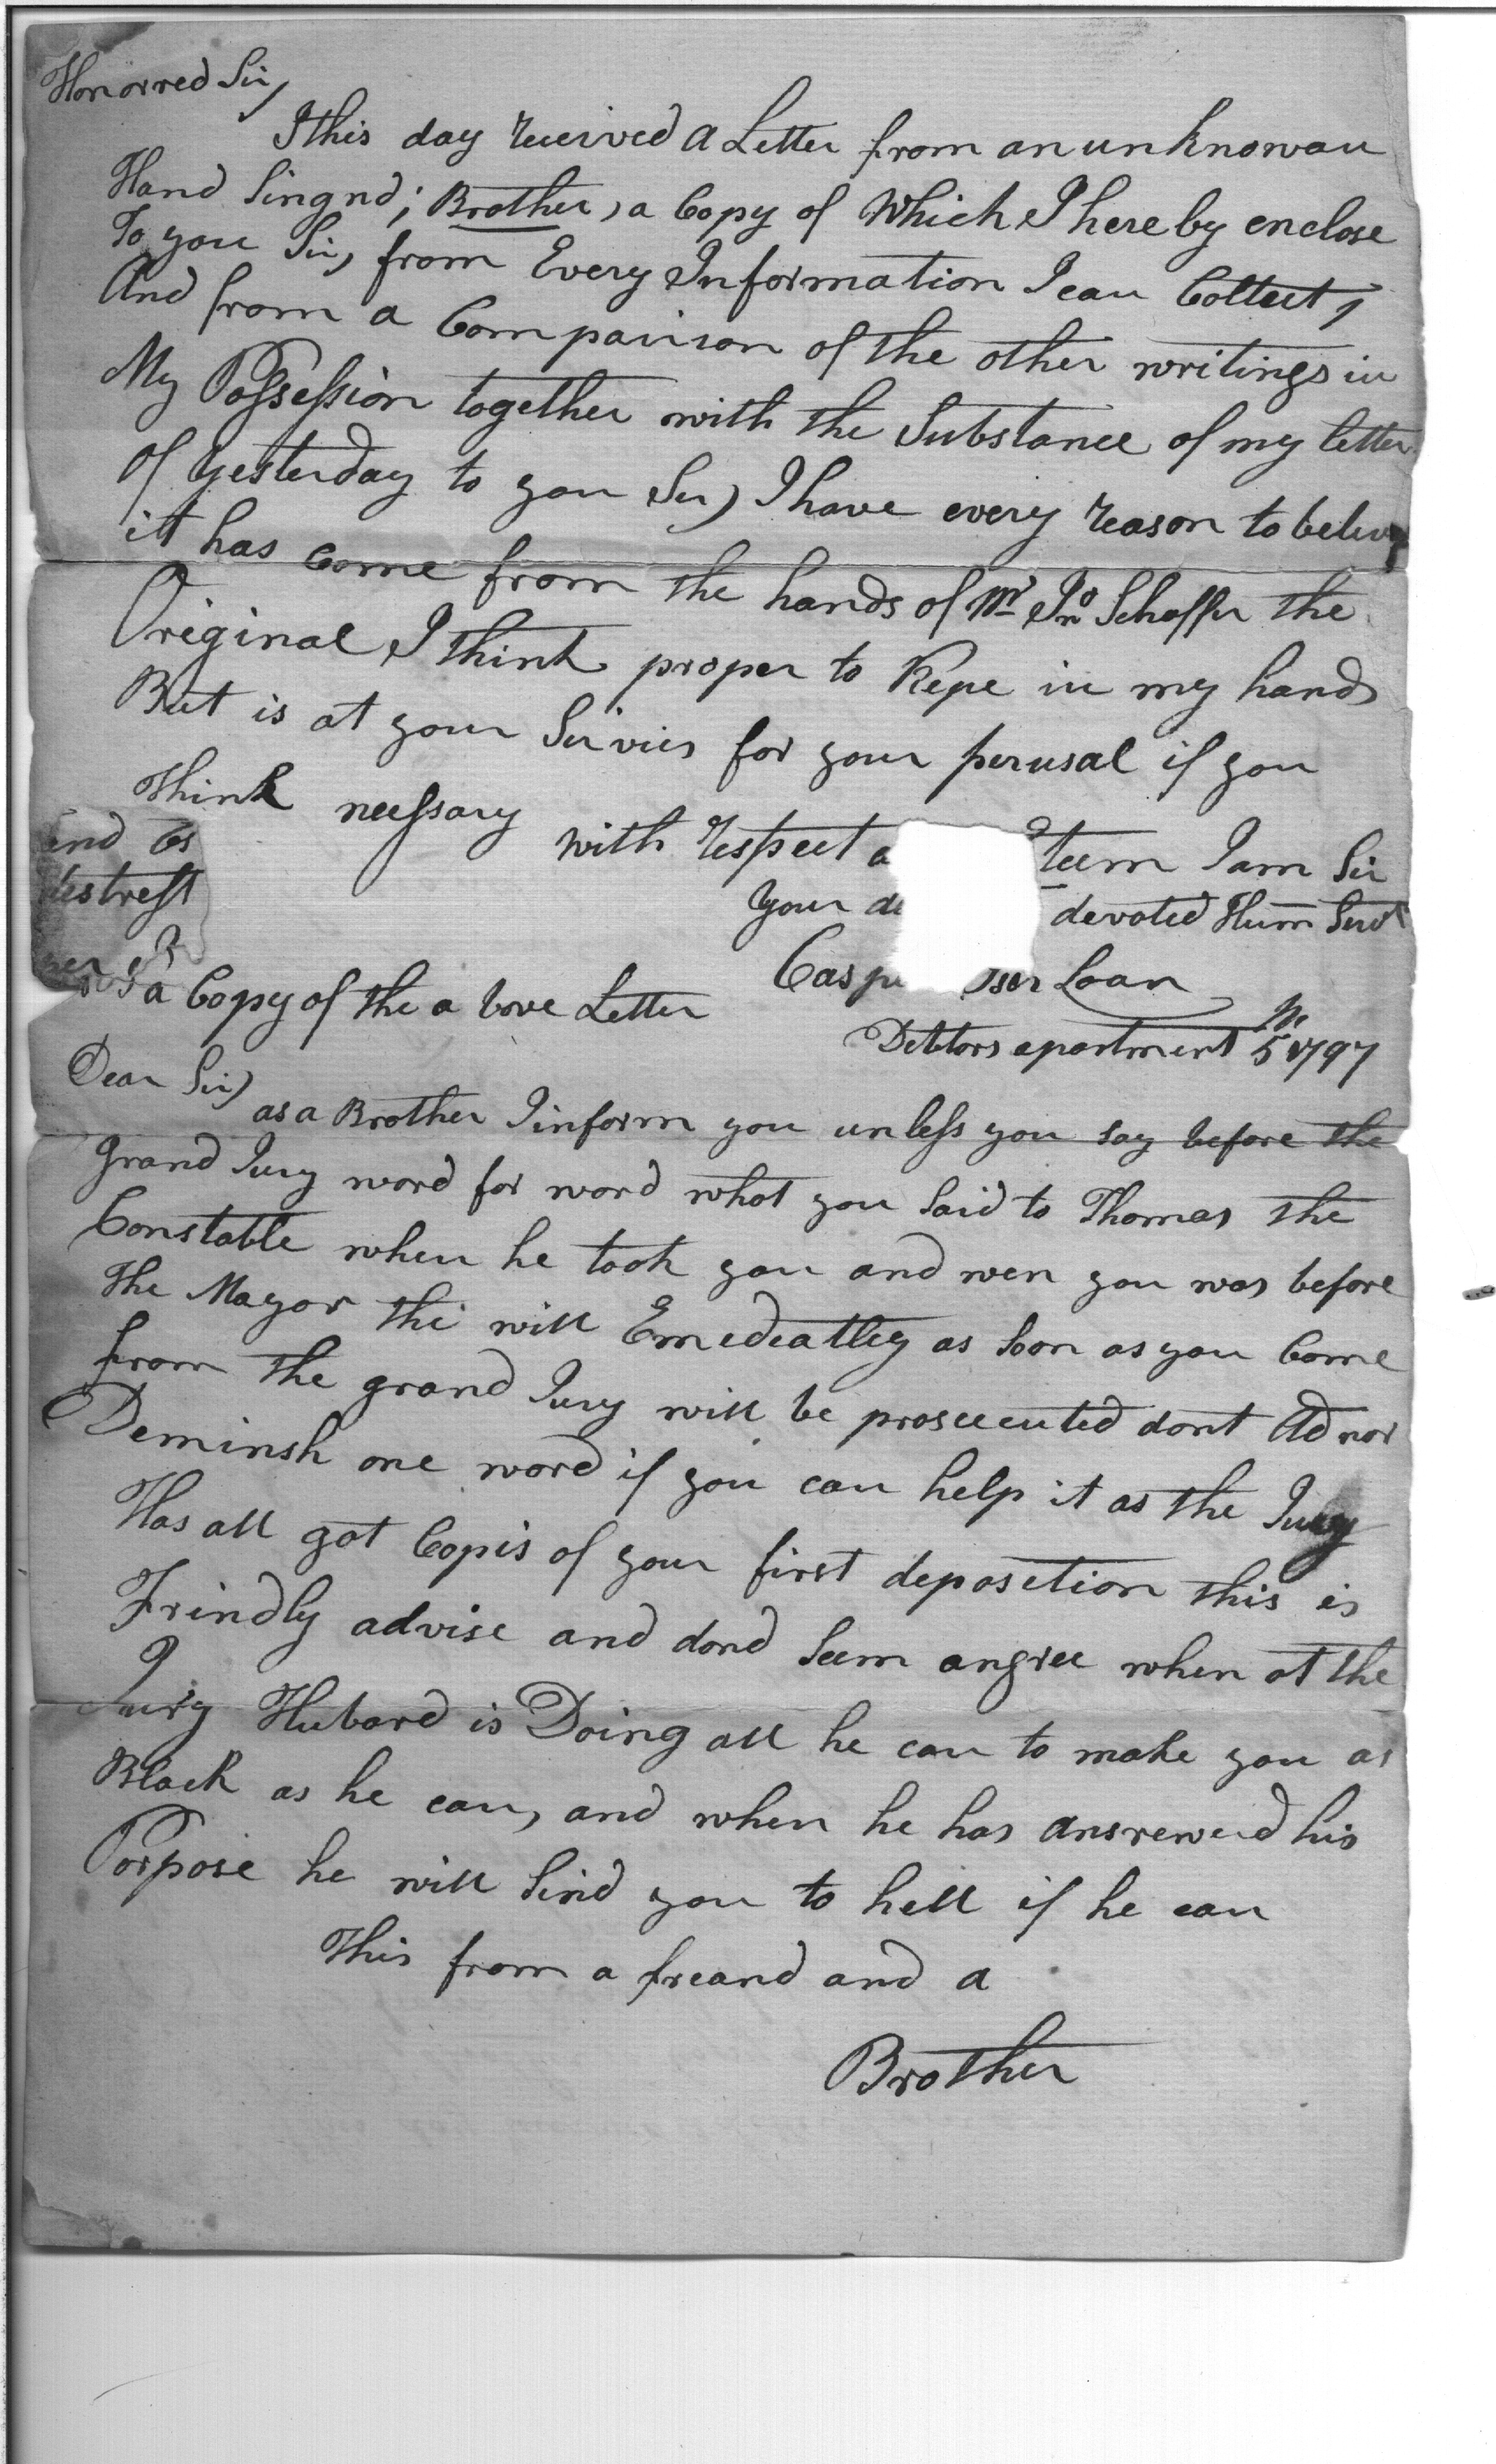 Honorred Sir,
I this day received a Letter from an unknowan
Hand Singnd; Brother, a Copy of Which I here by enclose
To you Sir, from Every Information I can Collect,
And from a Comparison of the other writings in
My Possession together with the Substance of my letter
Of yesterday to you Sir) I have every reason to beleive
it has Come from the hands of Mr Jno Schaffer the
Original I think proper to Kepe in my hands
But is at your Servies for your perusal if you
Think nessary
with respect a teem I am Sir
your de devoted Hum Servt
Casp Loan
Debtors apartment No 5 1797
a Copy of the a bove Letter
Dear Sir)
as a Brother I inform you unless you say before the
Grand Jury word for word what you Said to Thomas the
Constable when he took you and wen you was before
the Mayor thi will Emedeatley as Soon as you Come
from the grand Jury will be proseecuted dont Ad nor
Deminsh one word if you can help it as the Jury
Has all got Copis of your first deposetion this is
Frindly advise and dond Seem angree when at the
Jury Hubard is Doing all he can to make you as
Black as he can, and when he has answerered his
Porpose he will Sind you to hell if he can
This from a freand and a
Brother